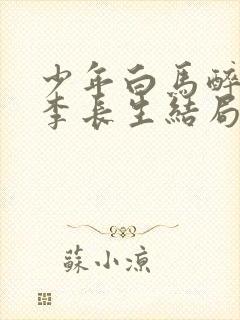 少年白馬醉
李長生結局
蘇小涼